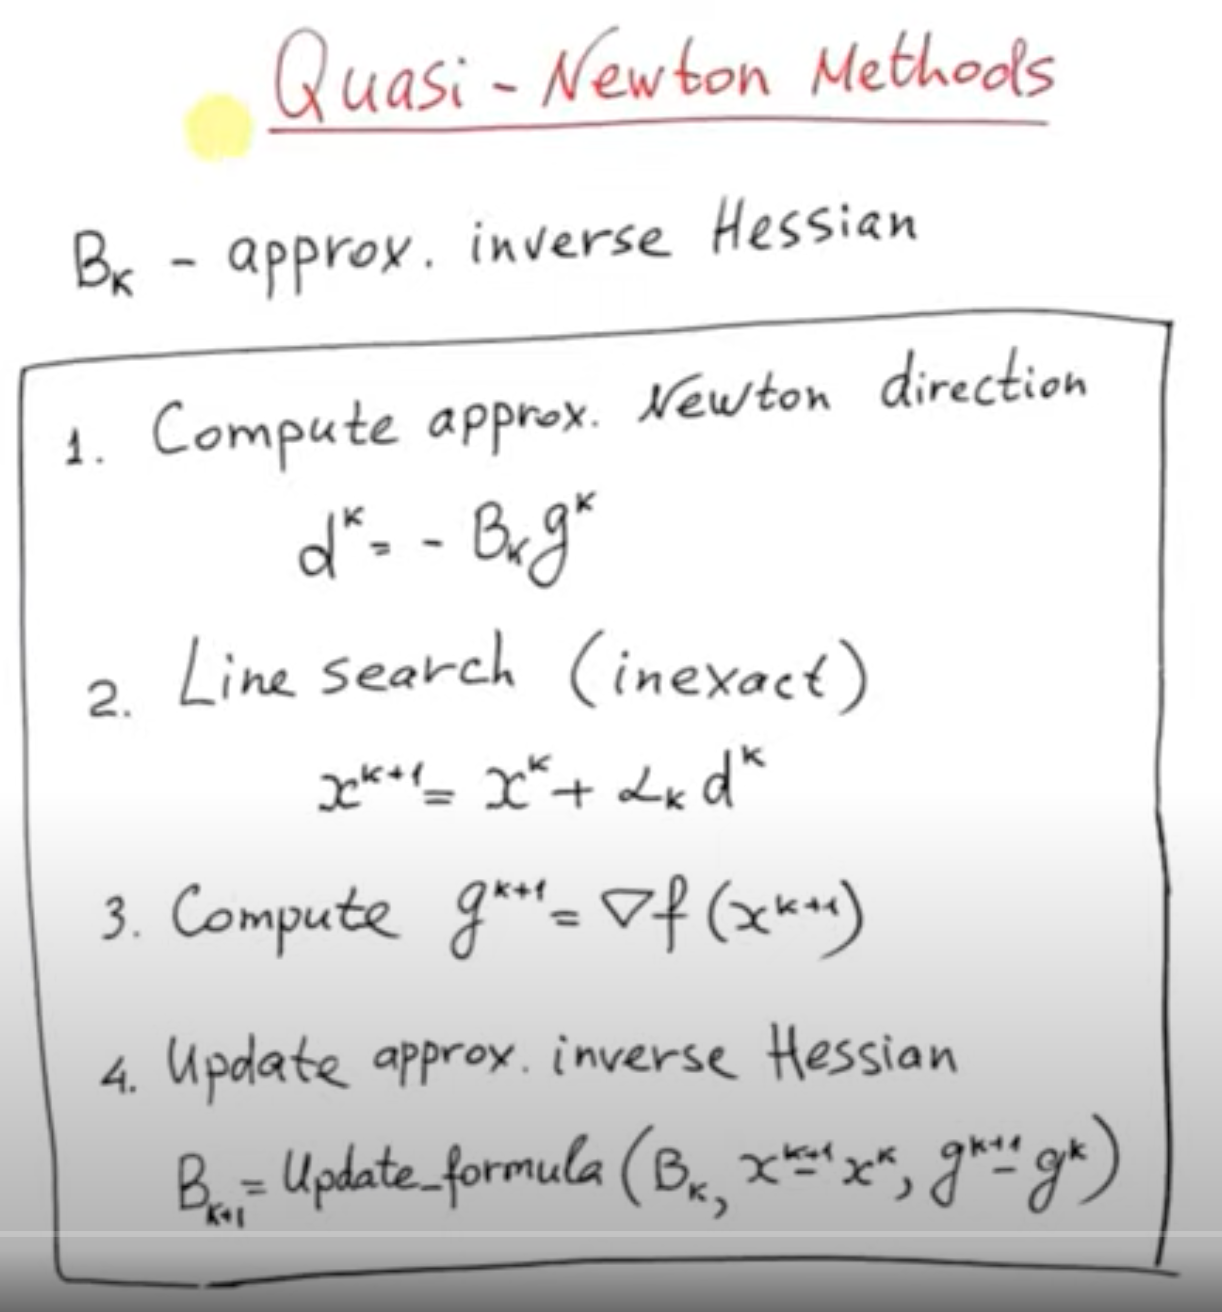 Quasi - Newton Methods
Bₖ - approx. inverse Hessian
1. Compute approx. Newton direction
dᵏ = - Bₖgᵏ
2. Line search (inexact)
xᵏ⁺¹ = xᵏ + αₖ dᵏ
3. Compute gᵏ⁺¹ = ∇f(xᵏ⁺¹)
4. Update approx. inverse Hessian
Bₖ₊₁ = Update_formula (Bₖ, xᵏ⁺¹ - xᵏ, gᵏ⁺¹ - gᵏ)